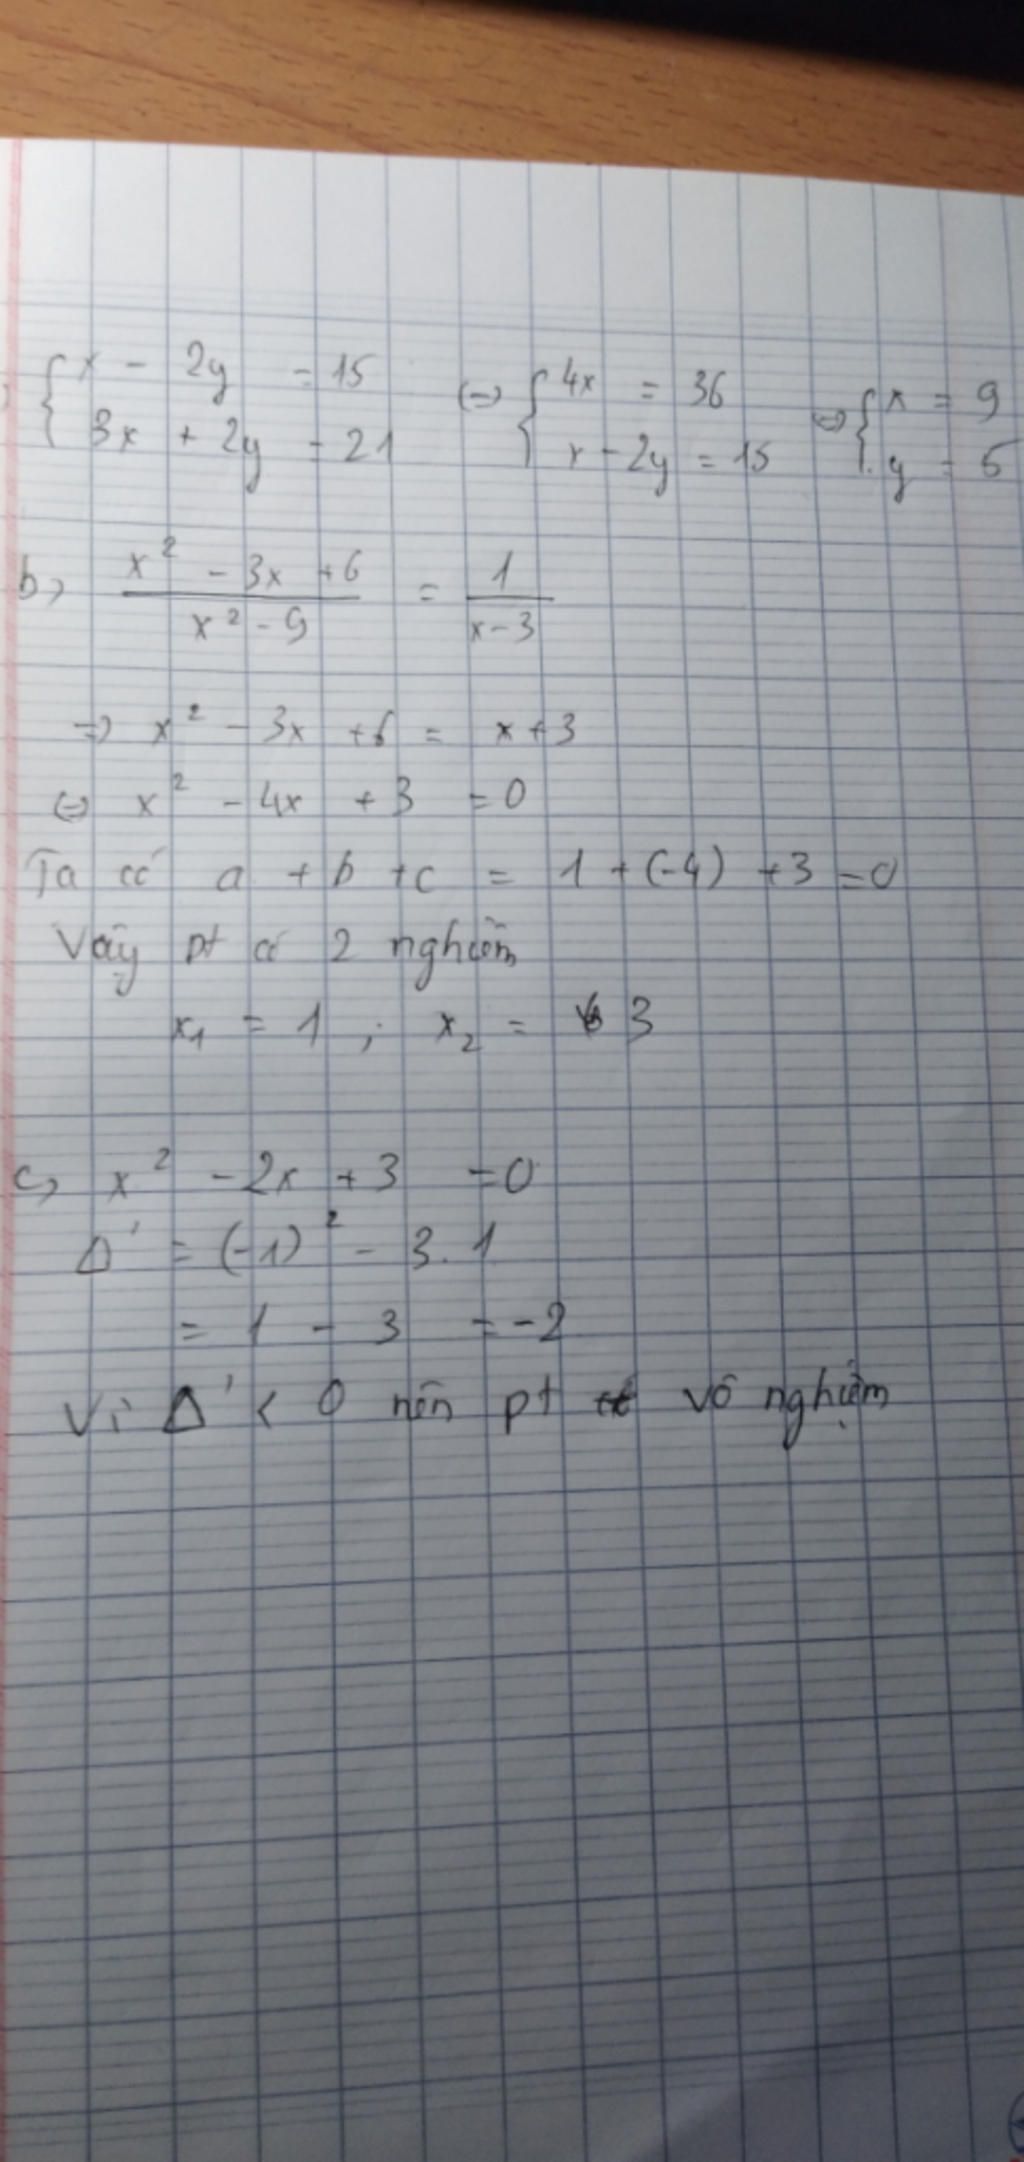 { x - 2y = 15 (=) { 4x = 36 (=) { x = 9
{ 3x + 2y = 21 { x - 2y = 15 { y = 5
b, (x² - 3x + 6)/(x² - 9) = 1/(x - 3)
=) x² - 3x + 6 = x + 3
(=) x² - 4x + 3 = 0
Ta có a + b + c = 1 + (-4) + 3 = 0
Vậy pt có 2 nghiệm
x₁ = 1 ; x₂ = 3
c, x² - 2x + 3 = 0
Δ' = (-1)² - 3.1
= 1 - 3 = -2
Vì Δ' < 0 nên pt vô nghiệm